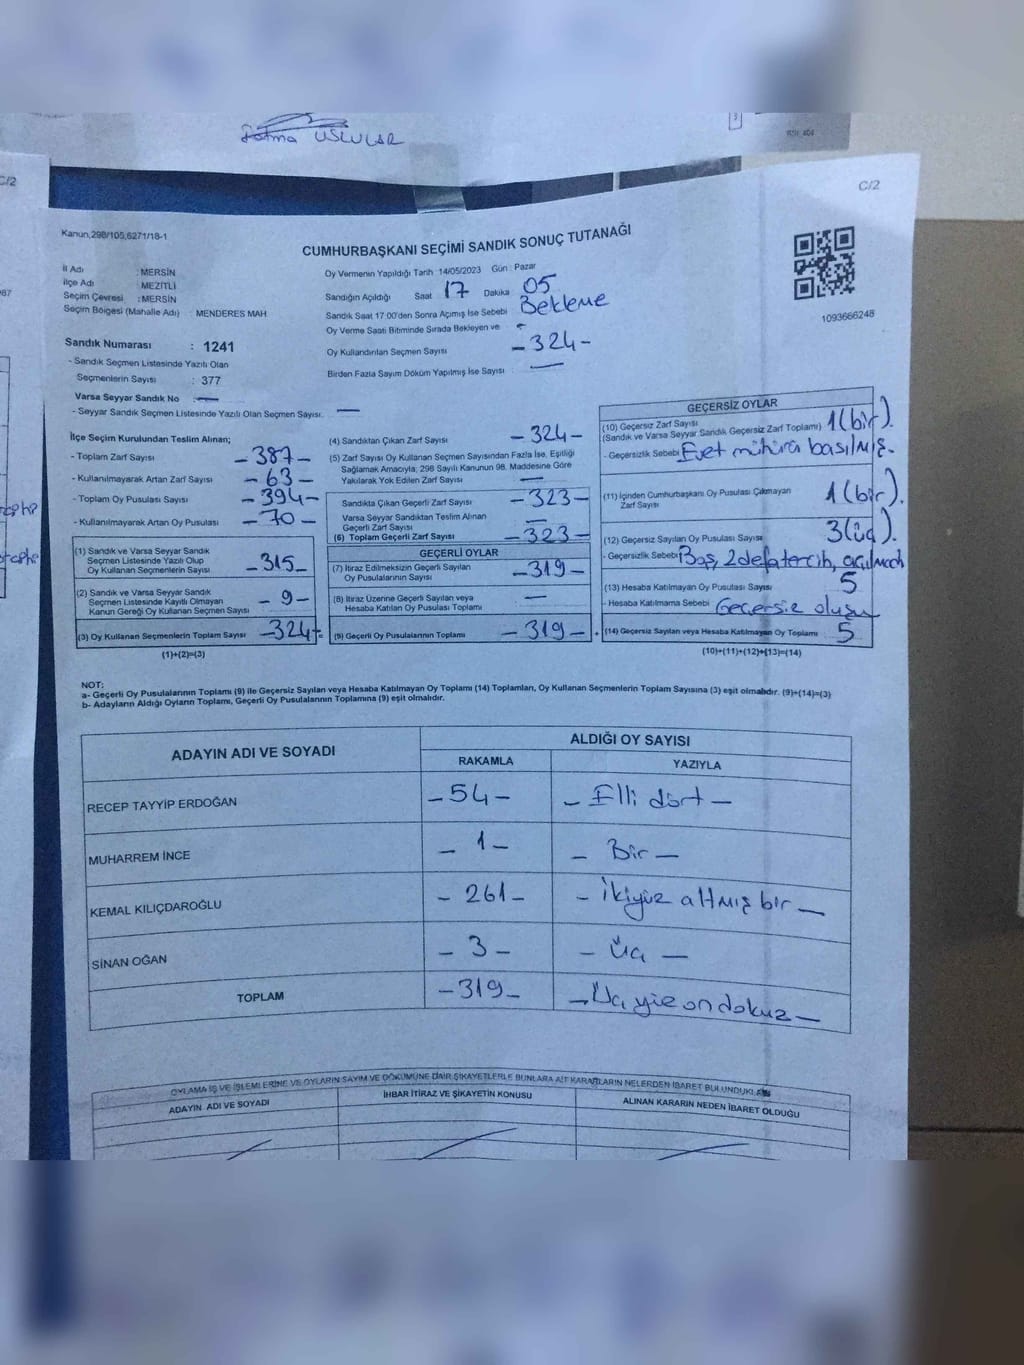 Fatma USLULAR
C/2
C/2
Kanun,298/105,6271/18-1
CUMHURBAŞKANI SEÇİMİ SANDIK SONUÇ TUTANAĞI
1093666248
İl Adı : MERSİN
İlçe Adı : MEZİTLİ
Seçim Çevresi : MERSİN
Seçim Bölgesi (Mahalle Adı) : MENDERES MAH
Sandık Numarası : 1241
- Sandık Seçmen Listesinde Yazılı Olan
Seçmenlerin Sayısı : 377
Varsa Seyyar Sandık No : —
- Seyyar Sandık Seçmen Listesinde Yazılı Olan Seçmen Sayısı. —
Oy Vermenin Yapıldığı Tarih :14/05/2023 Gün : Pazar
Sandığın Açıldığı Saat 17 Dakika 05
Sandık Saat 17:00'den Sonra Açımış İse Sebebi Bekleme
Oy Verme Saati Bitiminde Sırada Bekleyen ve
Oy Kullandırılan Seçmen Sayısı -324-
Birden Fazla Sayım Döküm Yapılmış İse Sayısı : —
İlçe Seçim Kurulundan Teslim Alınan;
- Toplam Zarf Sayısı -387-
- Kullanılmayarak Artan Zarf Sayısı -63-
- Toplam Oy Pusulası Sayısı -394-
- Kullanılmayarak Artan Oy Pusulası -70-
(1) Sandık ve Varsa Seyyar Sandık
Seçmen Listesinde Yazılı Olup
Oy Kullanan Seçmenlerin Sayısı -315-
(2) Sandık ve Varsa Seyyar Sandık
Seçmen Listesinde Kayıtlı Olmayan
Kanun Gereği Oy Kullanan Seçmen Sayısı -9-
(3) Oy Kullanan Seçmenlerin Toplam Sayısı -324-
(1)+(2)=(3)
(4) Sandıktan Çıkan Zarf Sayısı -324-
(5) Zarf Sayısı Oy Kullanan Seçmen Sayısından Fazla İse, Eşitliği
Sağlamak Amacıyla; 298 Sayılı Kanunun 98. Maddesine Göre
Yakılarak Yok Edilen Zarf Sayısı —
Sandıkta Çıkan Geçerli Zarf Sayısı -323-
Varsa Seyyar Sandıktan Teslim Alınan
Geçerli Zarf Sayısı —
(6) Toplam Geçerli Zarf Sayısı -323-
GEÇERLİ OYLAR
(7) İtiraz Edilmeksizin Geçerli Sayılan
Oy Pusulalarının Sayısı -319-
(8) İtiraz Üzerine Geçerli Sayılan veya
Hesaba Katılan Oy Pusulası Toplamı —
(9) Geçerli Oy Pusulalarının Toplamı -319-
GEÇERSİZ OYLAR
(10) Geçersiz Zarf Sayısı
(Sandık ve Varsa Seyyar Sandık Geçersiz Zarf Toplamı) 1(bir).
- Geçersizlik Sebebi Evet mühürü basılmış.
(11) İçinden Cumhurbaşkanı Oy Pusulası Çıkmayan
Zarf Sayısı 1(bir).
(12) Geçersiz Sayılan Oy Pusulası Sayısı 3(üç).
- Geçersizlik Sebebi Boş, 2 defa tercih,
(13) Hesaba Katılmayan Oy Pusulası Sayısı 5
- Hesaba Katılmama Sebebi Geçersiz oluşu
(14) Geçersiz Sayılan veya Hesaba Katılmayan Oy Toplamı 5
(10)+(11)+(12)+(13)=(14)
NOT:
a- Geçerli Oy Pusulalarının Toplamı (9) ile Geçersiz Sayılan veya Hesaba Katılmayan Oy Toplamı (14) Toplamları, Oy Kullanan Seçmenlerin Toplam Sayısına (3) eşit olmalıdır. (9)+(14)=(3)
b- Adayların Aldığı Oyların Toplamı, Geçerli Oy Pusulalarının Toplamına (9) eşit olmalıdır.
ADAYIN ADI VE SOYADI ALDIĞI OY SAYISI
RAKAMLA YAZIYLA
RECEP TAYYİP ERDOĞAN -54- - Elli dört -
MUHARREM İNCE - 1 - - Bir -
KEMAL KILIÇDAROĞLU - 261 - - İkiyüz altmış bir -
SİNAN OĞAN - 3 - - Üç -
TOPLAM -319- - Üçyüz on dokuz -
OYLAMA İŞ VE İŞLEMLERİNE VE OYLARIN SAYIM VE DÖKÜMÜNE DAİR ŞİKAYETLERLE BUNLARA AİT KARARLARIN NELERDEN İBARET BULUNDUKLARI
ADAYIN ADI VE SOYADI İHBAR İTİRAZ VE ŞİKAYETİN KONUSU ALINAN KARARIN NEDEN İBARET OLDUĞU